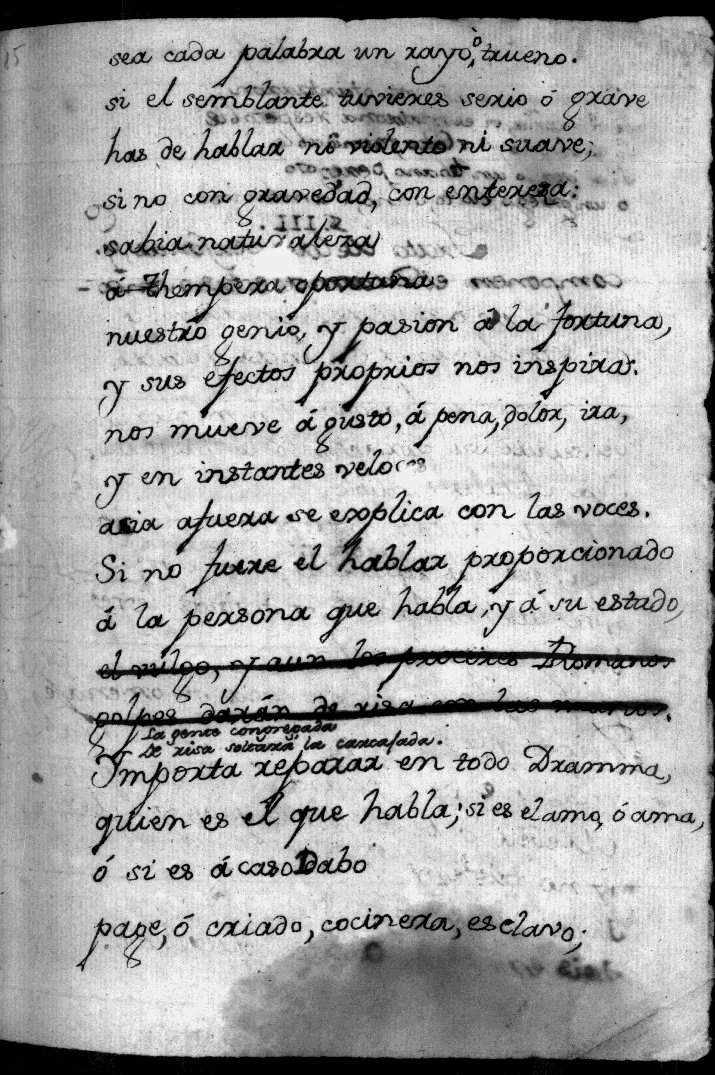 15
sea cada palabra un rayo, ò trueno.
si el semblante tuvieres serio ó grave
has de hablar ni violento ni suave;
si no con gravedad, con entereza:
sabia naturaleza
á Thempera oportuna
nuestro genio, y pasion á la fortuna,
y sus efectos proprios nos inspira.
nos mueve á gusto, á pena, dolor, ira,
y en instantes veloces
acia afuera se explica con las voces.
Si no fuere el hablar proporcionado
á la persona que habla, y á su estado,
el vulgo, y aun los proceres Romanos
golpes darán de risa con las manos.
La gente congregada
De risa soltará la carcajada.
Ymporta reparar en todo Dramma,
quien es el que habla; si es el amo, ó ama,
ó si es á caso Dabo
page, ó criado, cocinera, esclavo;